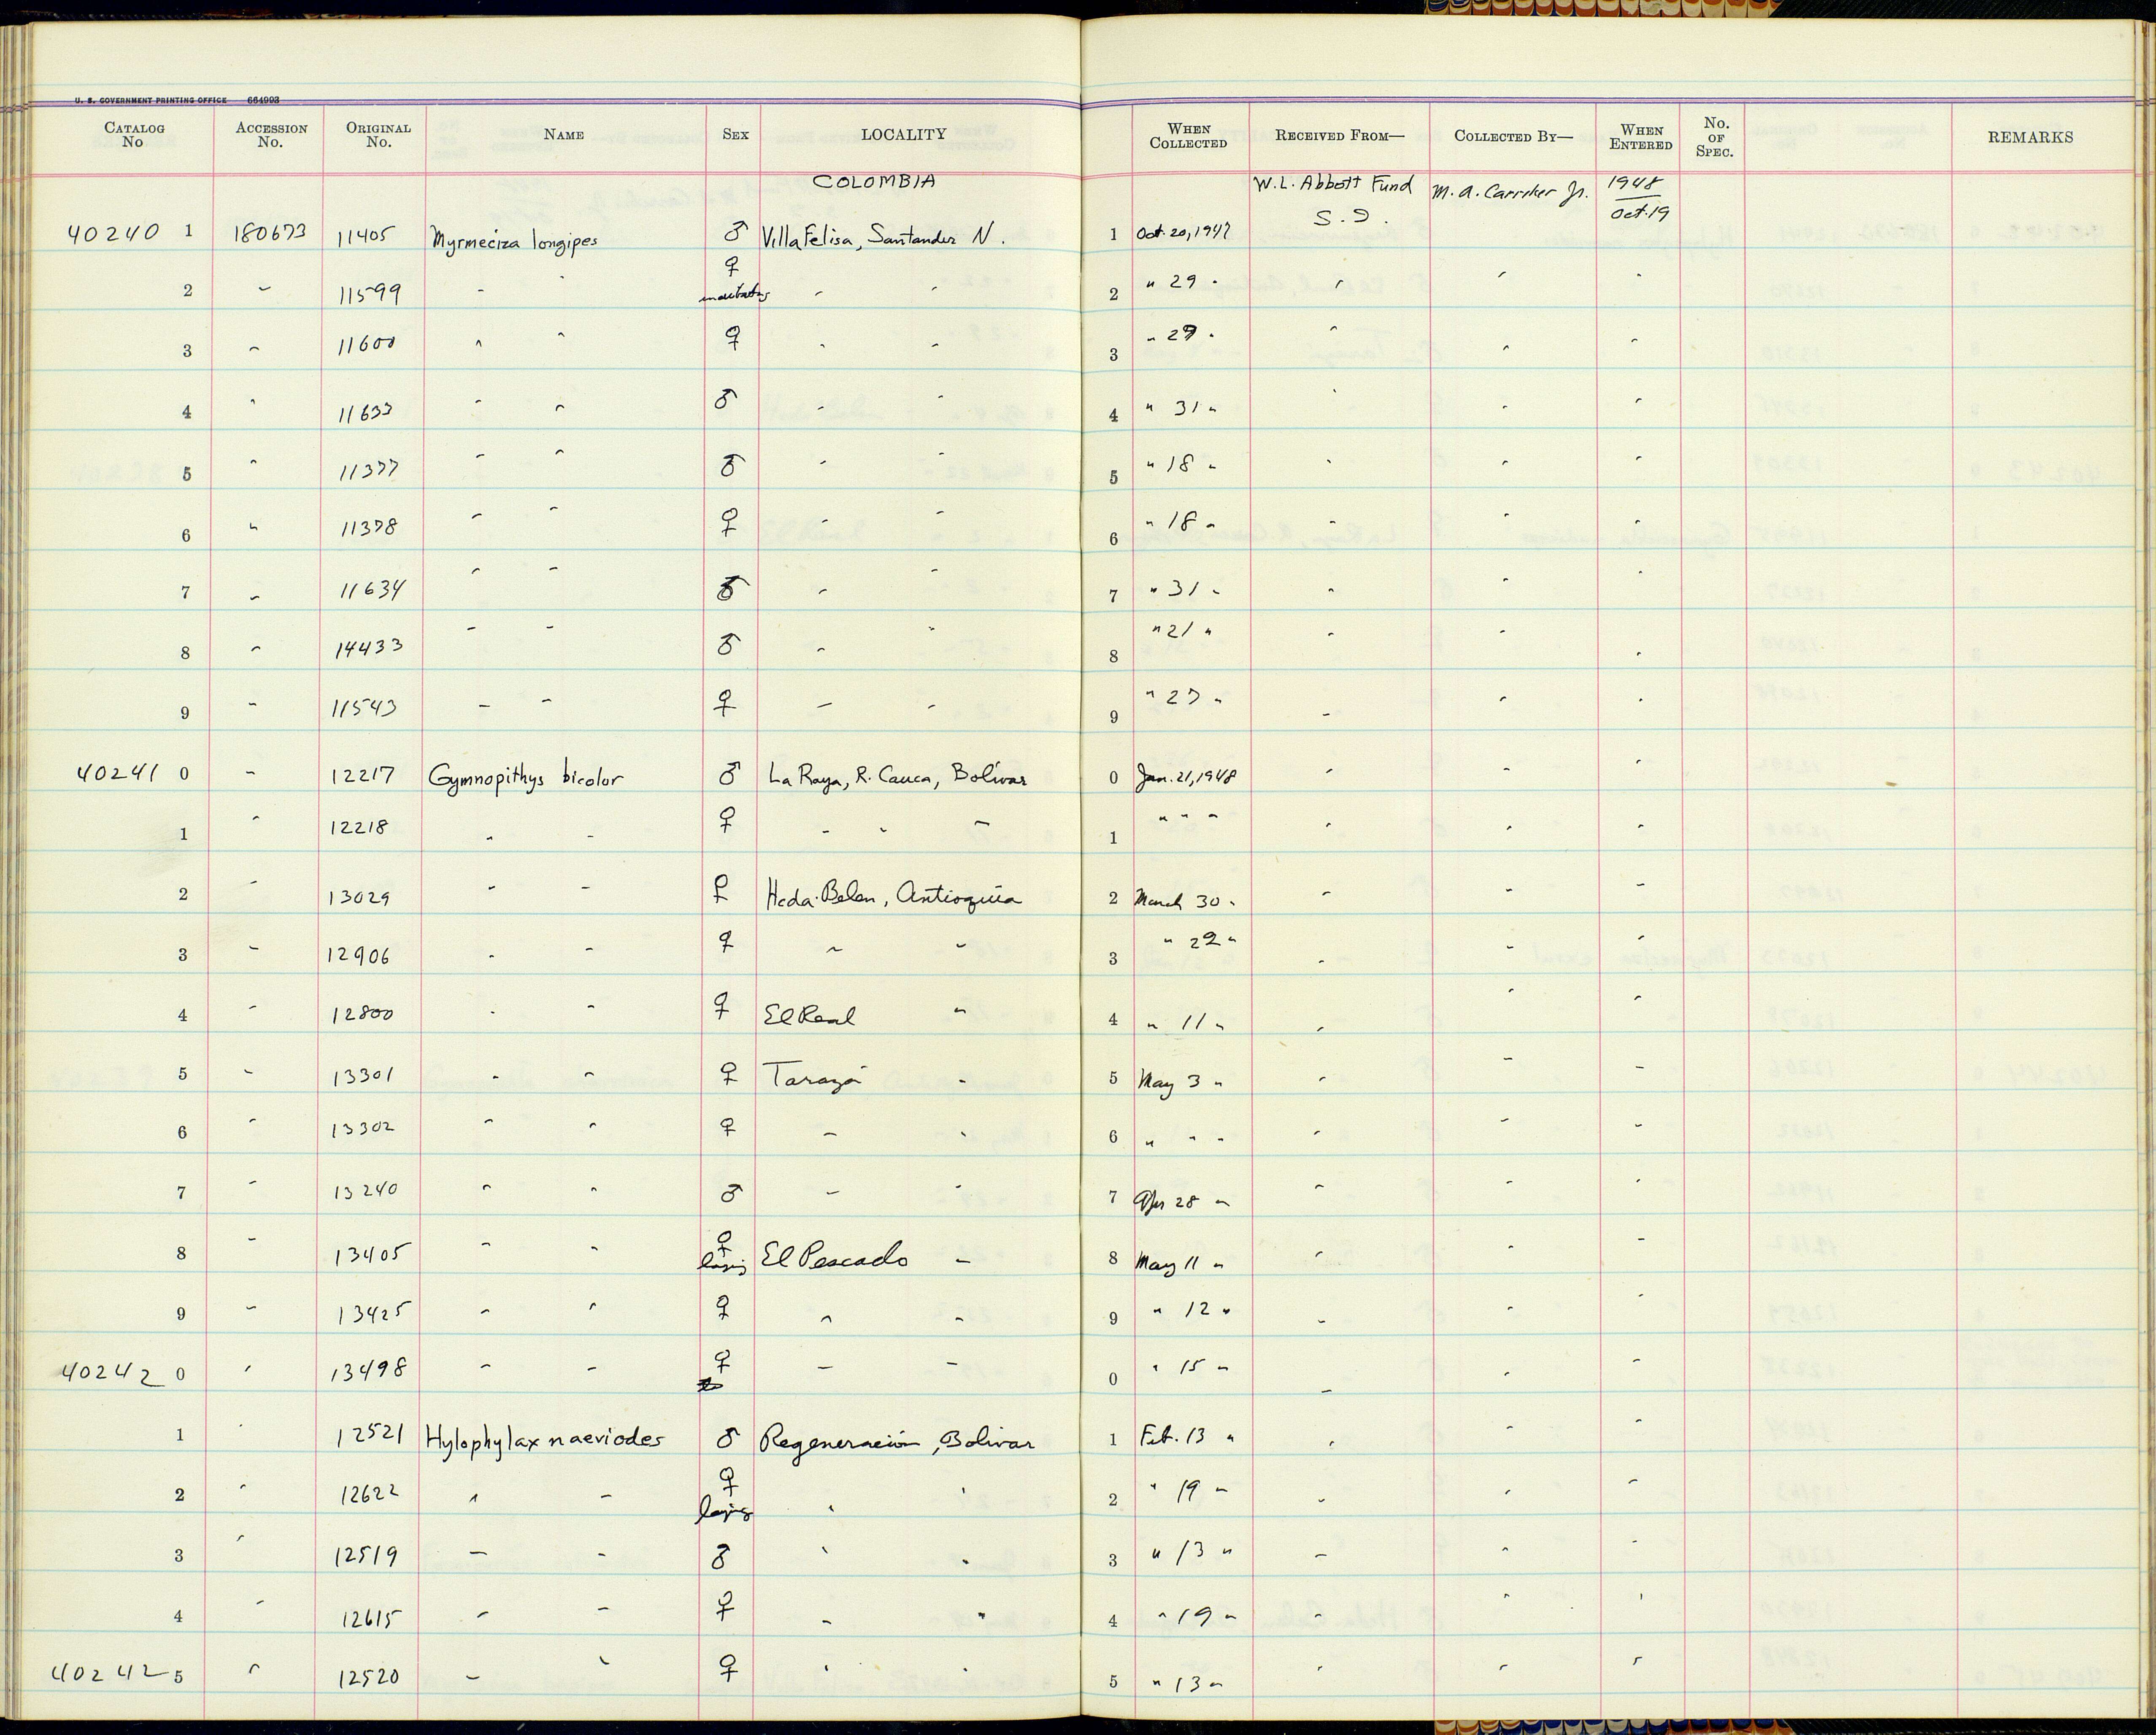 U. S. GOVERNMENT PRINTING OFFICE 664993
CATALOG No ACCESSION No. ORIGINAL No. NAME SEX LOCALITY WHEN COLLECTED RECEIVED FROM— COLLECTED BY— WHEN ENTERED No. OF SPEC. REMARKS
COLOMBIA W. L. Abbott Fund S. I. M. A. Carriker Jr. 1948 Oct. 19
40240 1 180673 11405 Myrmeciza longipes ♂ Villa Felisa, Santander N. 1 Oct. 20, 1947
2 " 11599 " " ♀ " " 2 " 29 " " " "
3 " 11600 " " ♀ " " 3 " 29 " " " "
4 " 11633 " " ♂ " " 4 " 31 " " " "
5 " 11377 " " ♂ " " 5 " 18 " " " "
6 " 11378 " " ♀ " " 6 " 18 " " " "
7 " 11634 " " ♂ " " 7 " 31 " " " "
8 " 14433 " " ♂ " " 8 " 21 " " " "
9 " 11543 " " ♀ " " 9 " 27 " " " "
40241 0 " 12217 Gymnopithys bicolor ♂ La Raya, R. Cauca, Bolívar 0 Jan. 21, 1948 " " "
1 " 12218 " " ♀ " " " 1 " " " " " "
2 " 13029 " " ♀ Hcda. Belen, Antioquia 2 March 30 " " " "
3 " 12906 " " ♀ " " 3 " 22 " " " "
4 " 12800 " " ♀ El Real " 4 " 11 " " " "
5 " 13301 " " ♀ Tarazá " 5 May 3 " " " "
6 " 13302 " " ♀ " " 6 " " " " " "
7 " 13240 " " ♂ " " 7 Apr 28 " " " "
8 " 13405 " " ♀ laying El Pescado " 8 May 11 " " " "
9 " 13425 " " ♀ " " 9 " 12 " " " "
40242 0 " 13498 " " ♀ " " 0 " 15 " " " "
1 " 12521 Hylophylax naeviodes ♂ Regeneración, Bolivar 1 Feb. 13 " " " "
2 " 12622 " " ♀ laying " " 2 " 19 " " " "
3 " 12519 " " ♂ " " 3 " 13 " " " "
4 " 12615 " " ♀ " " 4 " 19 " " " "
40242 5 " 12520 " " ♀ " " 5 " 13 " " " "